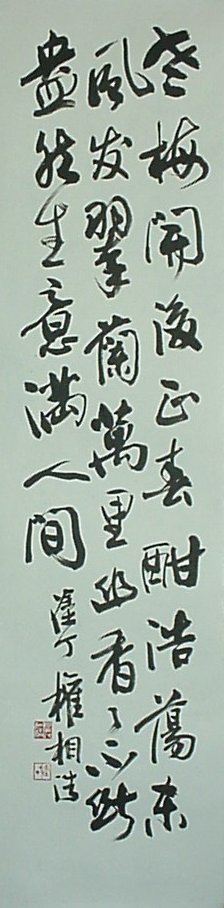 老梅開後正春酣浩蕩東
風发翠蘭萬里幽香々不断
盎然生意滿人間
塗丁權相浩